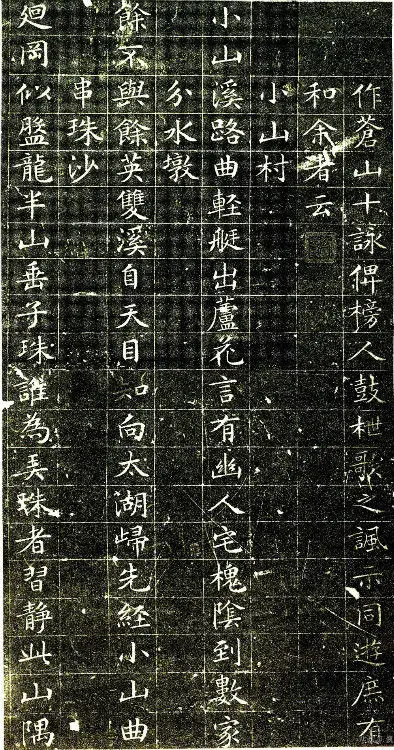 作蒼山十詠俾榜人鼓枻歌之諷示同遊庶有
和余者云
小山村
小山溪路曲軽艇出蘆花言有幽人宅槐陰到數家
分水墩
餘不與餘英雙溪自天目如向太湖歸先經小山曲
串珠沙
廻岡似盤龍半山垂子珠誰為弄珠者習静此山隅